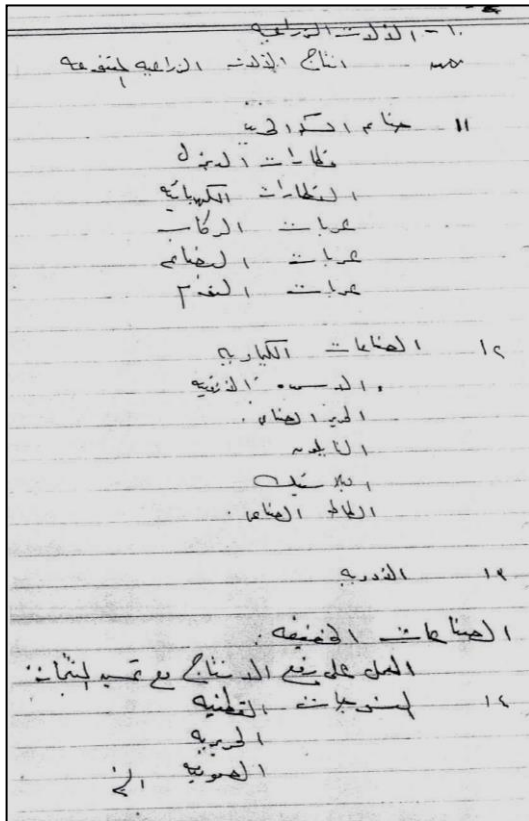 ١٠- الآلات الزراعية
انتاج الآلات الزراعيه المتنوعه
١١ صناعه السكك الحديد
قطارات الديزل
القطارات الكهربائيه
عربات الركاب
عربات البضاعه
عربات النوم
١٢ الصناعات الكيماويه
الاسمده الازوتيه
الحرير الصناعى
النايلون
البلاستيك
المطاط الصناعى
١٣ الادويه
الصناعات الخفيفه
العمل على رفع الانتاج مع تحسين المنتجات
١٤ المنسوجات القطنيه
الحريريه
الصوفيه الخ